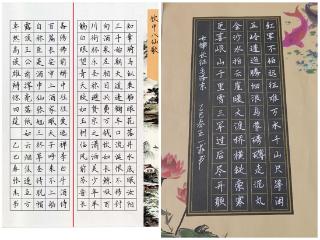 饮中八仙歌
知章骑马似乘船眼花落井水底眠汝阳
三斗始朝天道逢麴车口流涎恨不移封
向酒泉左相日兴费万钱饮如长鲸吸百
川衔杯乐圣称避贤宗之潇洒美少年举
觞白眼望青天皎如玉树临风前苏晋长
斋绣佛前醉中往往爱逃禅李白斗酒诗
百篇长安市上酒家眠天子呼来不上船
自称臣是酒中仙张旭三杯草圣传脱帽
露顶王公前挥毫落纸如云烟焦遂五斗方
卓然高谈雄辩惊四筵
红军不怕远征难万水千山只等闲
五岭逶迤腾细浪乌蒙磅礴走泥丸
金沙水拍云崖暖大渡桥横铁索寒
更喜岷山千里雪三军过后尽开颜
七律长征毛泽东